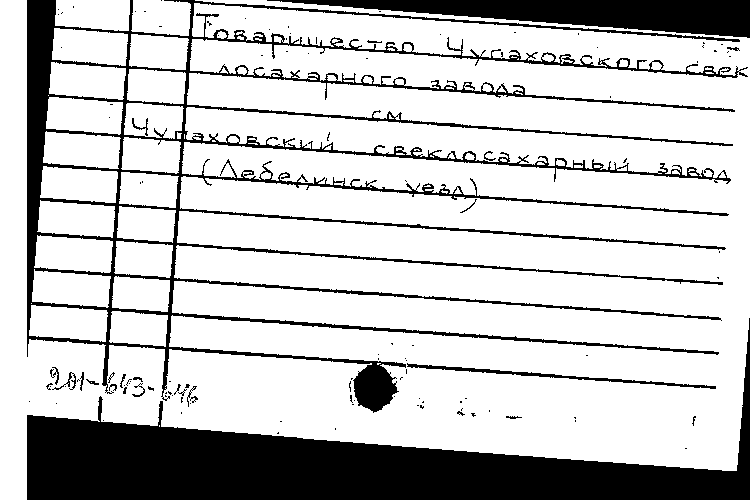 Товарищество Чупаховского свек
лосахарного завода
см
Чупаховский свеклосахарный завод
(Лебединск. уезд)
201-643-646